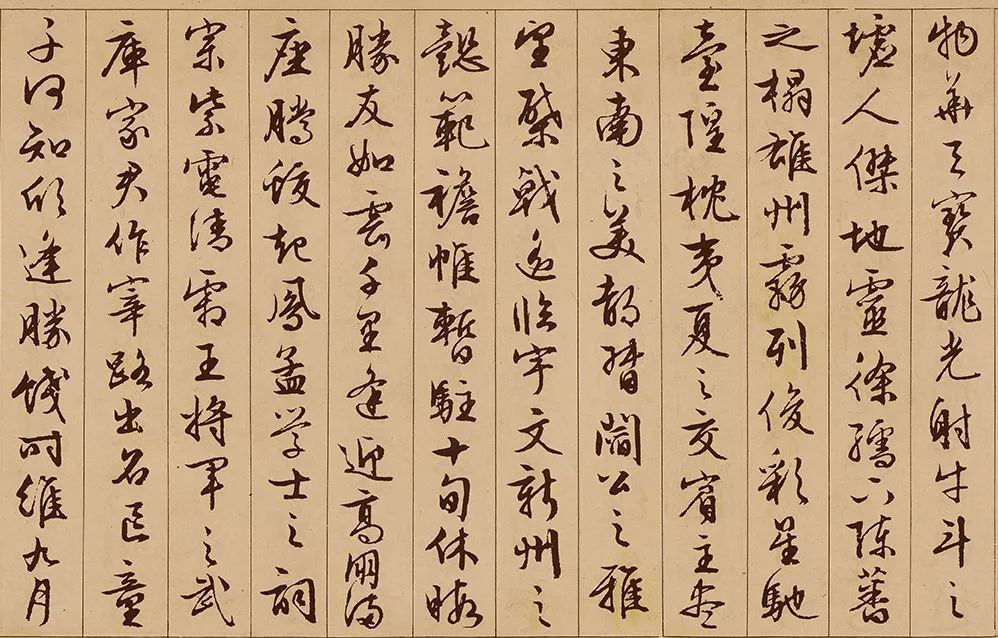 物華天寶龍光射牛斗之
墟人傑地靈徐孺下陳蕃
之榻雄州霧列俊彩星馳
臺隍枕夷夏之交賓主盡
東南之美都督閻公之雅
望棨戟遙臨宇文新州之
懿範襜帷暫駐十旬休暇
勝友如雲千里逢迎高朋滿
座騰蛟起鳳孟学士之詞
宗紫電清霜王將軍之武
庫家君作宰路出名區童
子何知躬逢勝餞時維九月